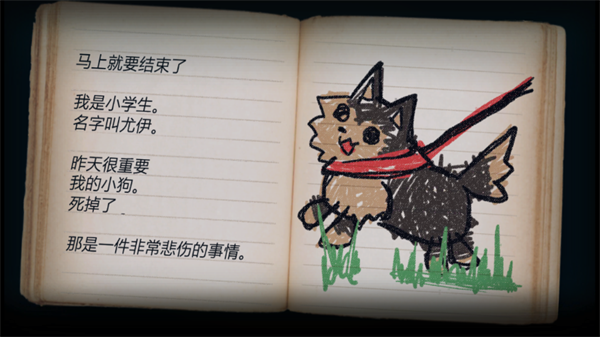 马上就要结束了
我是小学生。
名字叫尤伊。
昨天很重要
我的小狗。
死掉了。
那是一件非常悲伤的事情。